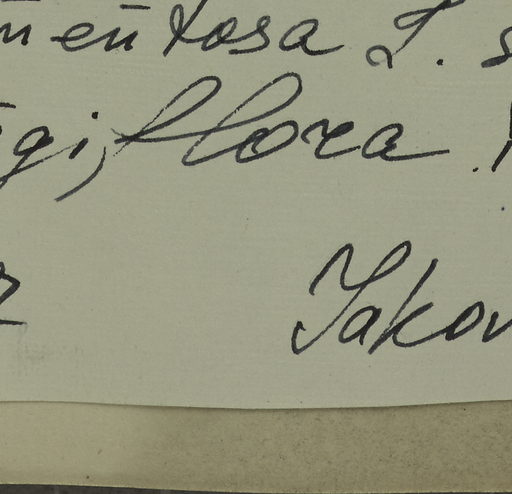 mentosa L. s
gi, flora.
Jakov